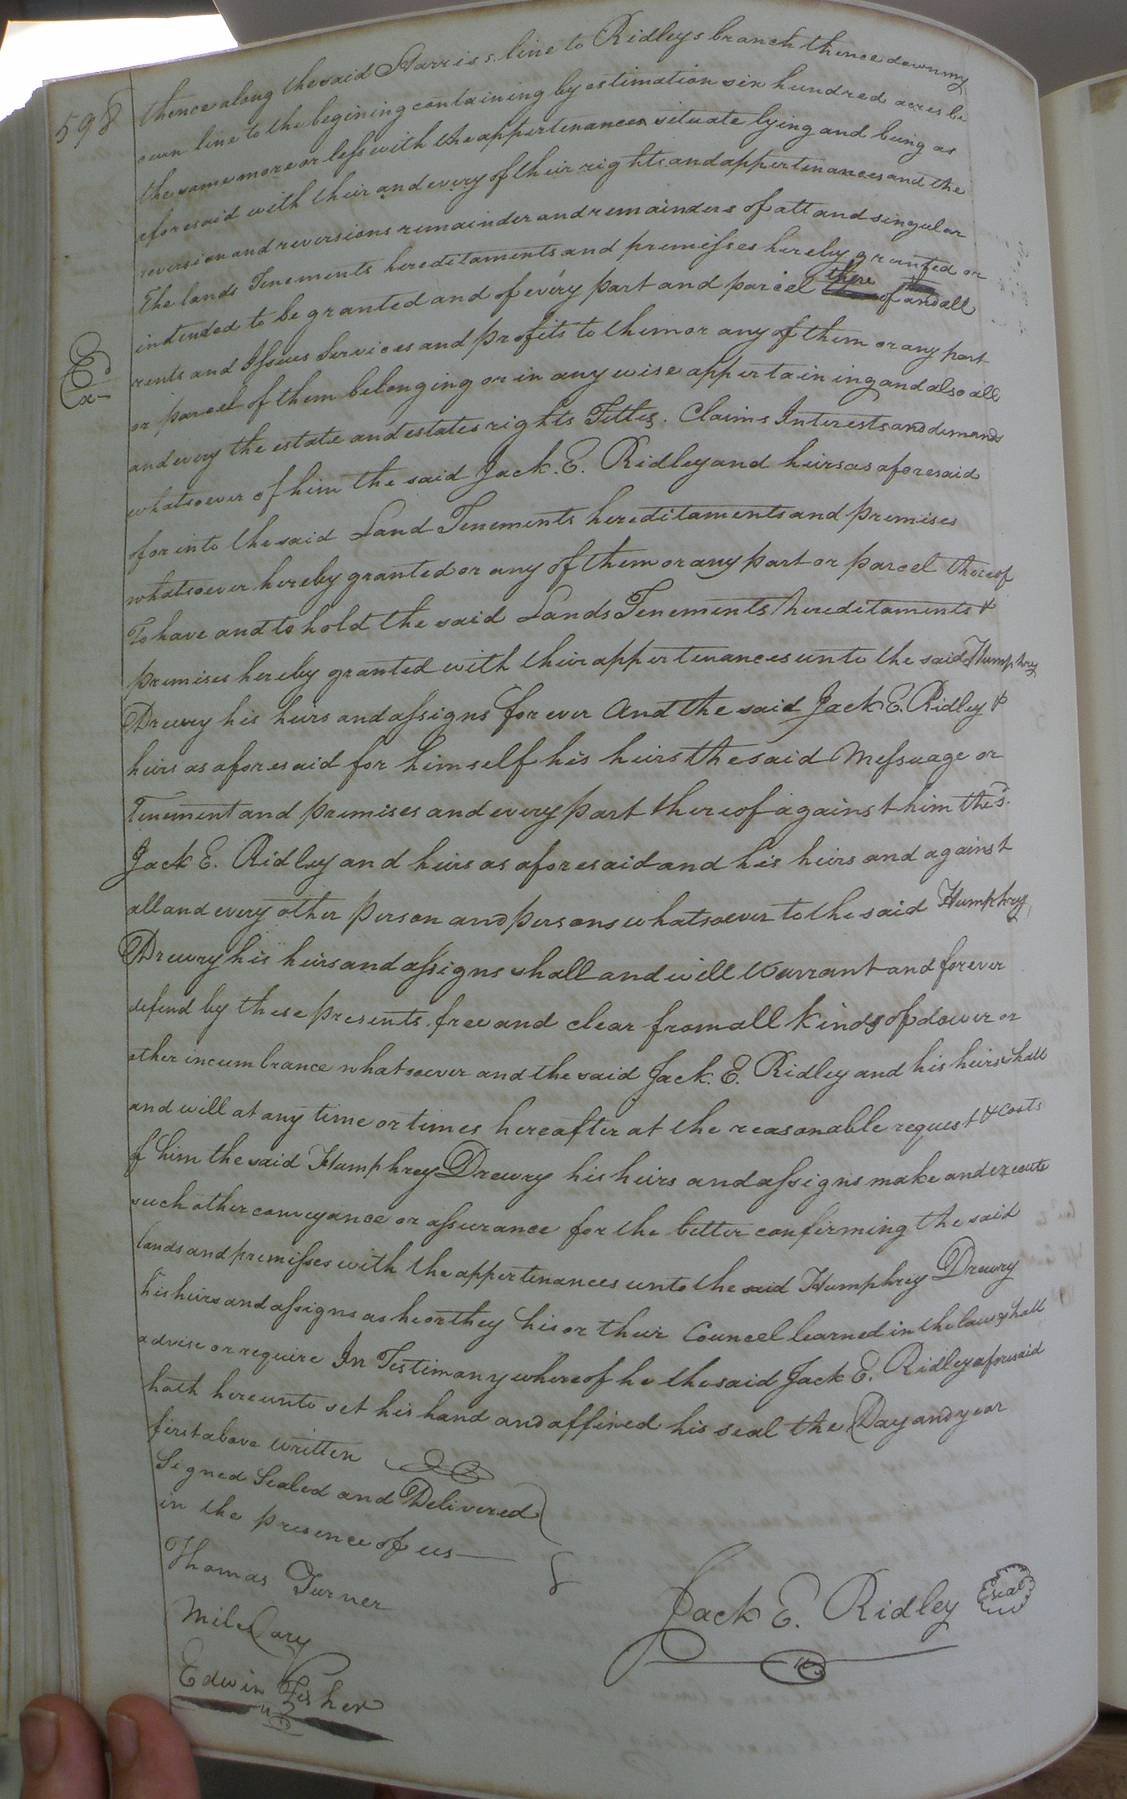 598
thence along the said Harriss. line to Ridleys branch thence down my
own line to the begining containing by estimation six hundred acres be
the same more or less with the appertenances situate lying and being as
aforesaid with their and every of their rights and appertenances and the
reversion and reversions remainder and remainders of all and singular
The lands Tenements hereditaments and premisses hereby granted or
intended to be granted and of every part and parcel there of and all
Exd
rents and Issues Services and profits to them or any of them or any part
or parcel of them belonging or in any wise appertaining and also all
and every the estate and estates rights Titles. Claims Interests and demands
whatsoever of him the said Jack. E. Ridley and heirs as aforesaid
of or into the said Land Tenements hereditaments and premises
whatsoever hereby granted or any of them or any part or parcel thereof
To have and to hold the said Lands Tenements hereditaments &
premises hereby granted with their appertenances unto the said Humphrey
Drewry his heirs and assigns for ever And the said Jack E. Ridley &
heirs as aforesaid for himself his heirs the said Messuage or
Tenement and premises and every part thereof against him the sd.
Jack E. Ridley and heirs as aforesaid and his heirs and against
all and every other person and persons whatsoever to the said Humphrey
Drewry his heirs and assigns shall and will warrant and forever
defend by these presents free and clear from all kinds of dower or
other incumbrance whatsoever and the said Jack. E. Ridley and his heirs shall
and will at any time or times hereafter at the reasonable request & costs
of him the said Humphrey Drewry his heirs and assigns make and execute
such other conveyance or assurance for the better confirming the said
lands and premisses with the appertenances unto the said Humphrey Drewry
his heirs and assigns as he or they his or their Councel learned in the law shall
advise or require In Testimony whereof he the said Jack E. Ridley aforesaid
hath hereunto set his hand and affixed his seal the Day and year
first above written
Signed Sealed and Delivered
in the presence of us
Thomas Turner
Mile Cary
Edwin Fisher
Jack E. Ridley Seal